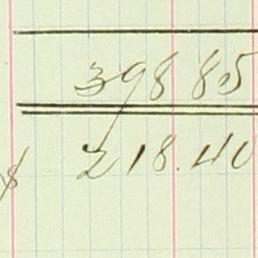 398 85
$ 218.40